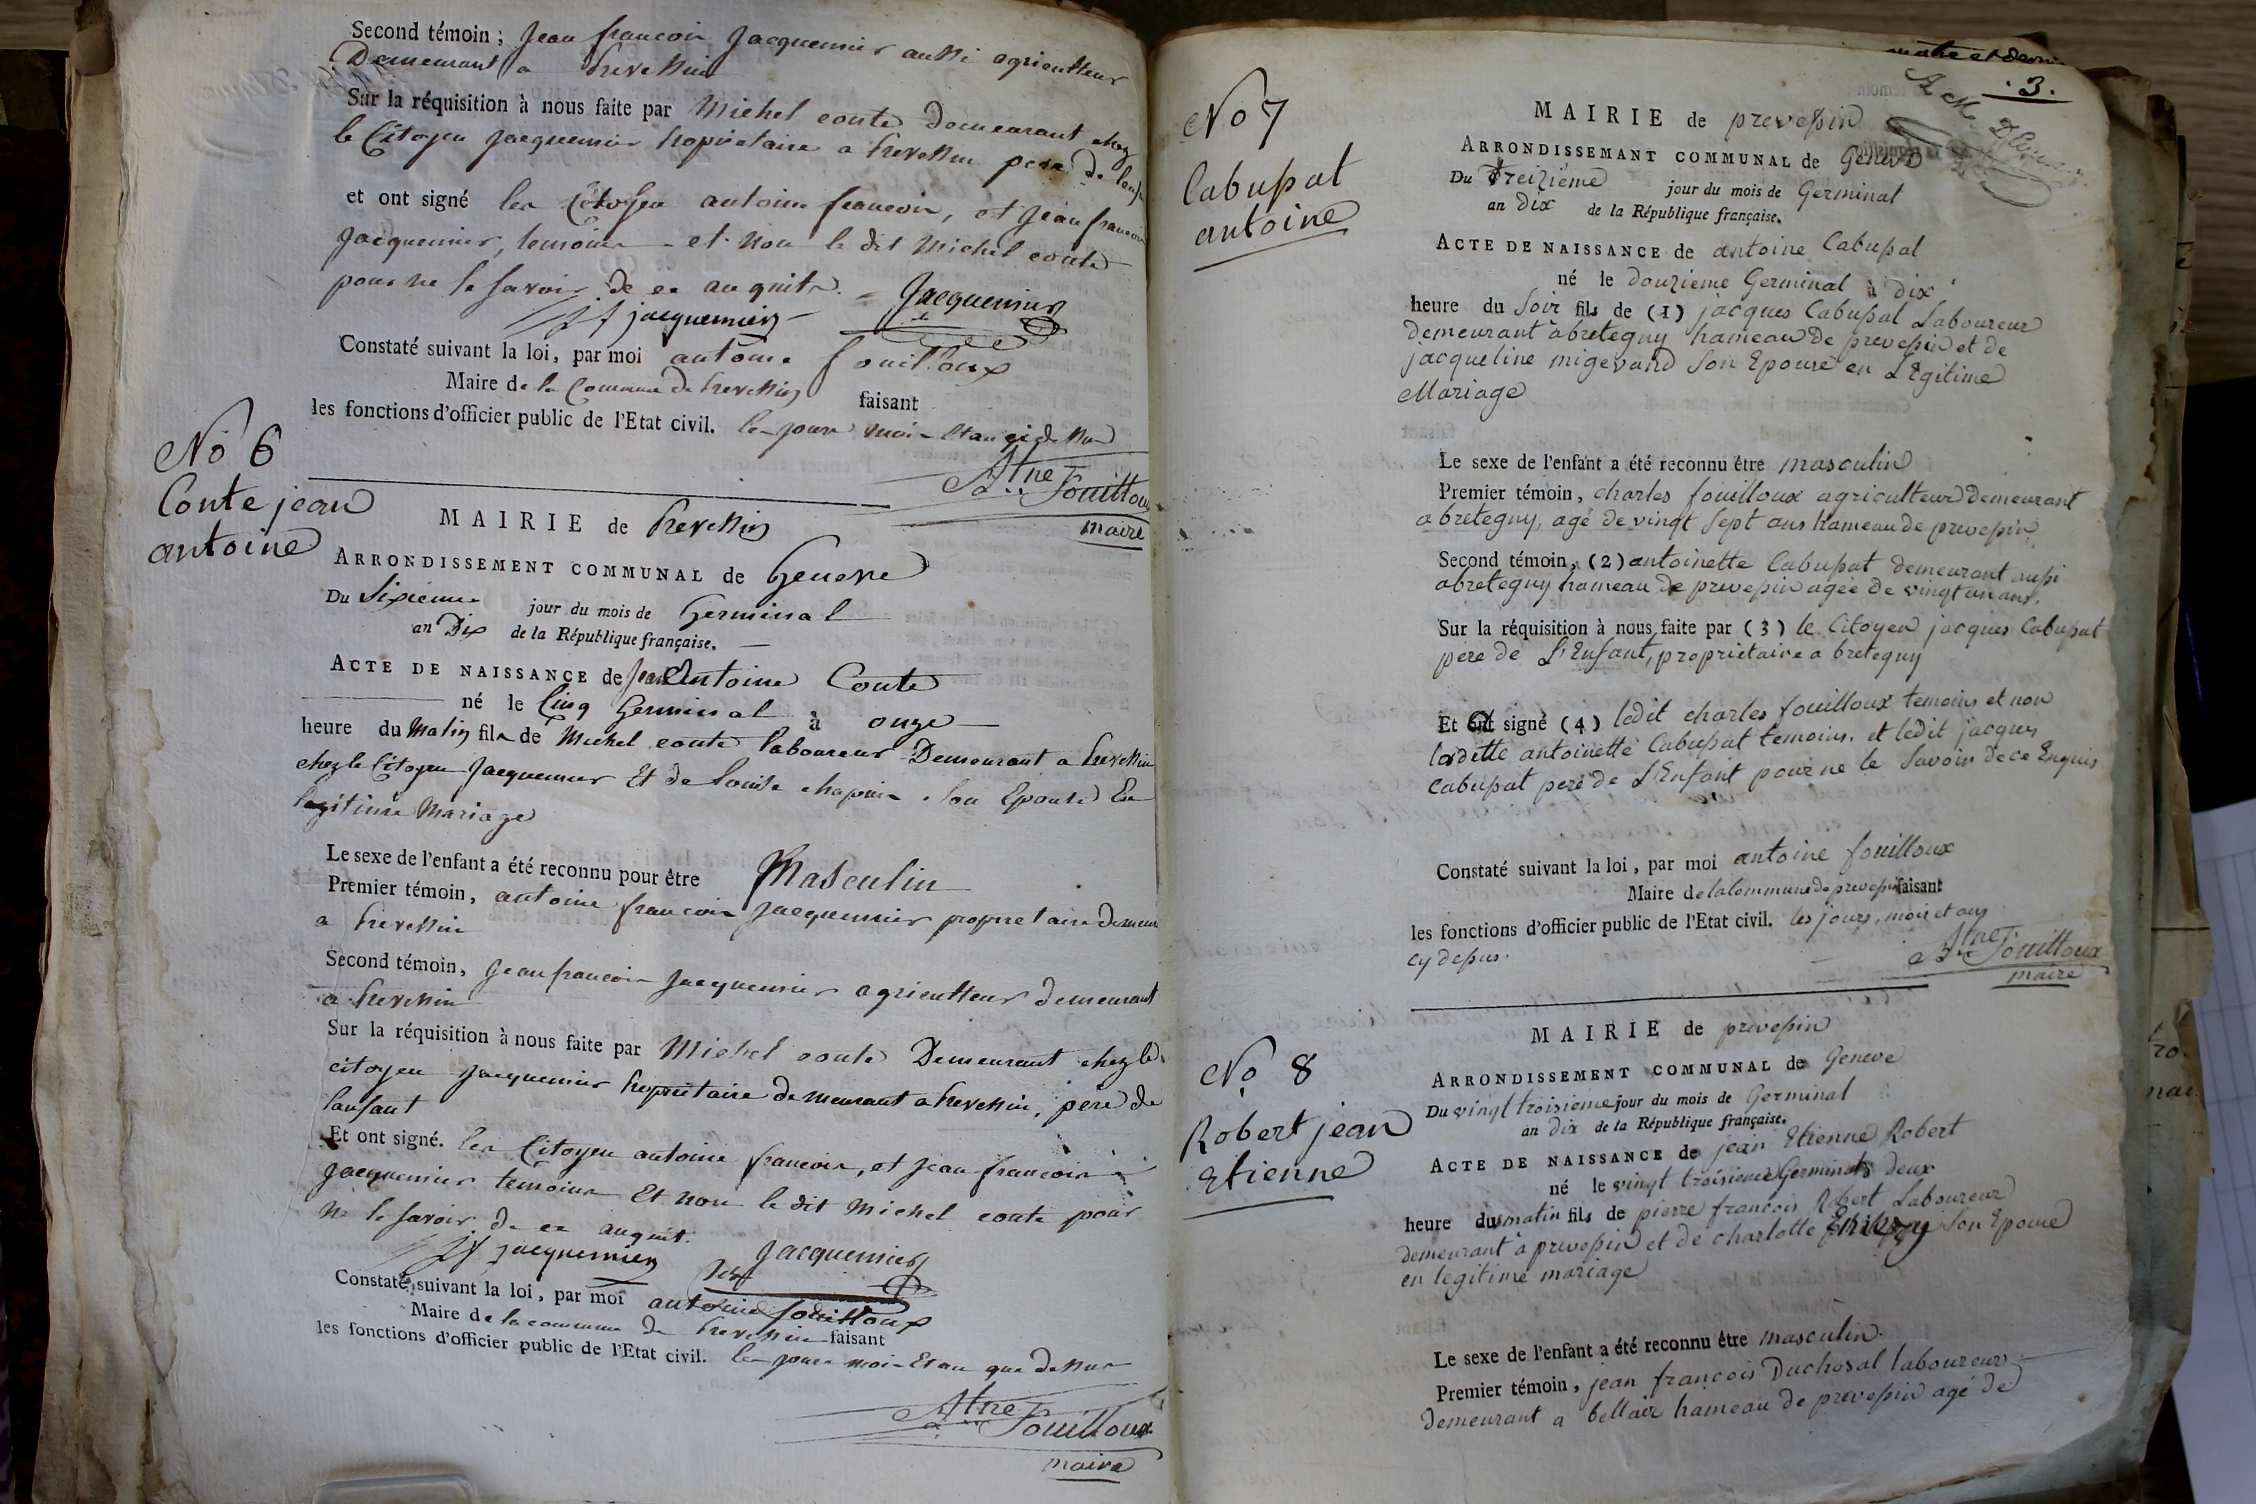 Second témoin ; Jean francois Jacquemier aussi agriculteur
Demeurant a Prevessin
Sur la réquisition à nous faite par Michel conte Demeurant chez
le Citoyen Jacquemier Propriétaire a Prevessin pere de
et ont signé les Citoyen antoine francois, et Jean francois
Jacquemier, temoins et non le dit Michel conte
pour ne le savoir de ce anquits.
jf jacquemier Jacquemier
Constaté suivant la loi, par moi antoine fouilloux
Maire de la Commune de Prevessin faisant
les fonctions d'officier public de l'Etat civil. les jours mois et an
Atne Fouilloux
maire
No 6
Conte jean
antoine
MAIRIE de Prevessin
ARRONDISSEMENT COMMUNAL de Geneve
Du Sixieme jour du mois de Germinal
an Dix de la République française.
ACTE DE NAISSANCE de Jean Antoine Conte
né le Cinq Germinal à onze
heure du Matin fils de Michel conte laboureur Demeurant a Prevessin
chez le Citoyen Jacquemier Et de Louise chapuis son Epouse En
legitime Mariage
Le sexe de l'enfant a été reconnu pour être Masculin
Premier témoin, antoine francois Jacquemier proprietaire
a Prevessin
Second témoin, Jean francois Jacquemier agriculteur demeurant
a Prevessin
Sur la réquisition à nous faite par Michel conte Demeurant chez le
citoyen Jacquemier Propriétaire demeurant a Prevessin, pere de
lanfant
Et ont signé. les Citoyen antoine francois, et Jean francois
Jacquemier temoins Et non le dit Michel conte pour
ne le savoir de ce anquit.
jf jacquemier Jacquemier
Constaté suivant la loi, par moi antoine fouilloux
Maire de la commune de Prevessin faisant
les fonctions d'officier public de l'Etat civil. les jours mois Et an que dessus
Atne Fouilloux
maire
. 3 .
No 7
Cabussat
antoine
MAIRIE de prevessin
ARRONDISSEMANT COMMUNAL de Geneve
Du treizieme jour du mois de Germinal
an Dix de la République française.
ACTE DE NAISSANCE de antoine Cabussat
né le douzieme Germinal à Dix
heure du Soir fils de (1) jacques Cabussat Laboureur
demeurant a bretegny hameau de prevessin et de
jacqueline migevand son Epouse en Legitime
Mariage
Le sexe de l'enfant a été reconnu être masculin
Premier témoin, charles fouilloux agriculteur demeurant
a bretegny, agé de vingt sept ans hameau de prevessin
Second témoin, (2) antoinette Cabussat demeurant aussi
a bretegny hameau de prevessin agée de vingt un ans.
Sur la réquisition à nous faite par (3) le Citoyen jacques Cabussat
pere de L'Enfant, propriétaire a bretegny
Et ont signé (4) ledit charles fouilloux temoins et non
laditte antoinette Cabussat temoins. et ledit jacques
Cabussat pere de L'Enfant pour ne le Savoir de ce Enquis
Constaté suivant la loi, par moi antoine fouilloux
Maire de la Commune de prevessin faisant
les fonctions d'officier public de l'Etat civil. les jours, mois et an
cy dessus.
Atne Fouilloux
maire
No 8
Robert jean
Etienne
MAIRIE de prevessin
ARRONDISSEMENT COMMUNAL de Geneve
Du vingt troisieme jour du mois de Germinal
an dix de la République française.
ACTE DE NAISSANCE de jean Etienne Robert
né le vingt troisieme Germinal à deux
heure du matin fils de pierre francois Robert Laboureur
demeurant a prevessin et de charlotte son Epouse
en legitime mariage
Le sexe de l'enfant a été reconnu être masculin.
Premier témoin, jean francois Duchosal laboureur
demeurant a bellair hameau de prevessin agé de